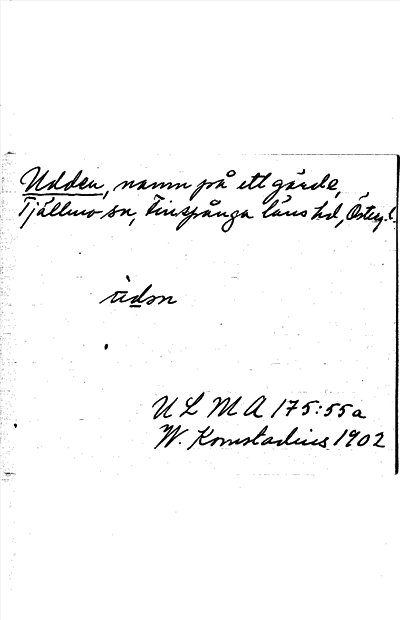 Udden, namn på ett gärde,
Tjällmo sn, Finspånga läns hd, Österg.l.
ùdən
ULMA 175:55a
W. Komstadius 1902